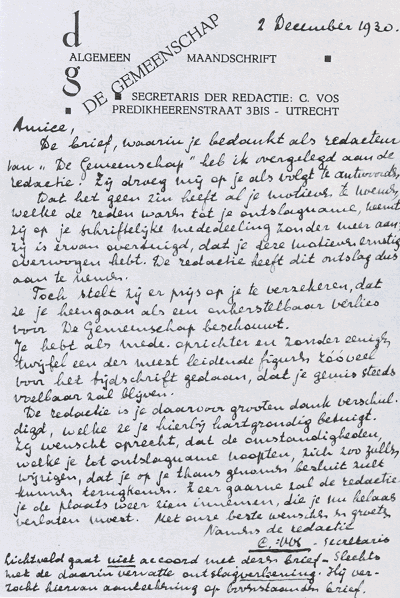 2 December 1930.
d g
DE GEMEENSCHAP
ALGEMEEN MAANDSCHRIFT
SECRETARIS DER REDACTIE: C. VOS
PREDIKHEERENSTRAAT 3BIS - UTRECHT
Amice,
De brief, waarin je bedankt als redacteur
van "De Gemeenschap" heb ik overgelegd aan de
redactie. Zij droeg mij op je als volgt te antwoorden,
Dat het geen zin heeft al je motieven te
welke de reden waren tot je ontslagname, neemt
zij op je schriftelijke mededeeling zonder meer aan,
zij is ervan overtuigd, dat je deze motieven ernstig
overwogen hebt. De redactie heeft dit ontslag dus
aan te nemen.
Toch stelt zij er prijs op je te verzekeren, dat
ze je heengaan als een onherstelbaar verlies
voor De Gemeenschap beschouwt.
Je hebt als mede-oprichter en zonder eenigen
twijfel een der meest leidende figuren zóóveel
voor het tijdschrift gedaan, dat je gemis steeds
voelbaar zal blijven.
De redactie is je daarvoor grooten dank verschul-
digd, welke ze je hierbij hartgrondig betuigt.
Zij wenscht oprecht, dat de omstandigheden,
welke je tot ontslagname noopten, zich zoo zullen
wijzigen, dat je op je thans genomen besluit zult
kunnen terugkomen. Zeer gaarne zal de redactie
je de plaats weer zien innemen, die je nu helaas
verlaten moest. Met onze beste wenschen en groeten
Namens de redactie
C. Vos - secretaris
Lichtveld gaat niet accoord met dezen brief - Slechts
met de daarin vervatte ontslagverleening. Hij ver-
zocht hiervan aanteekening op bovenstaanden brief.